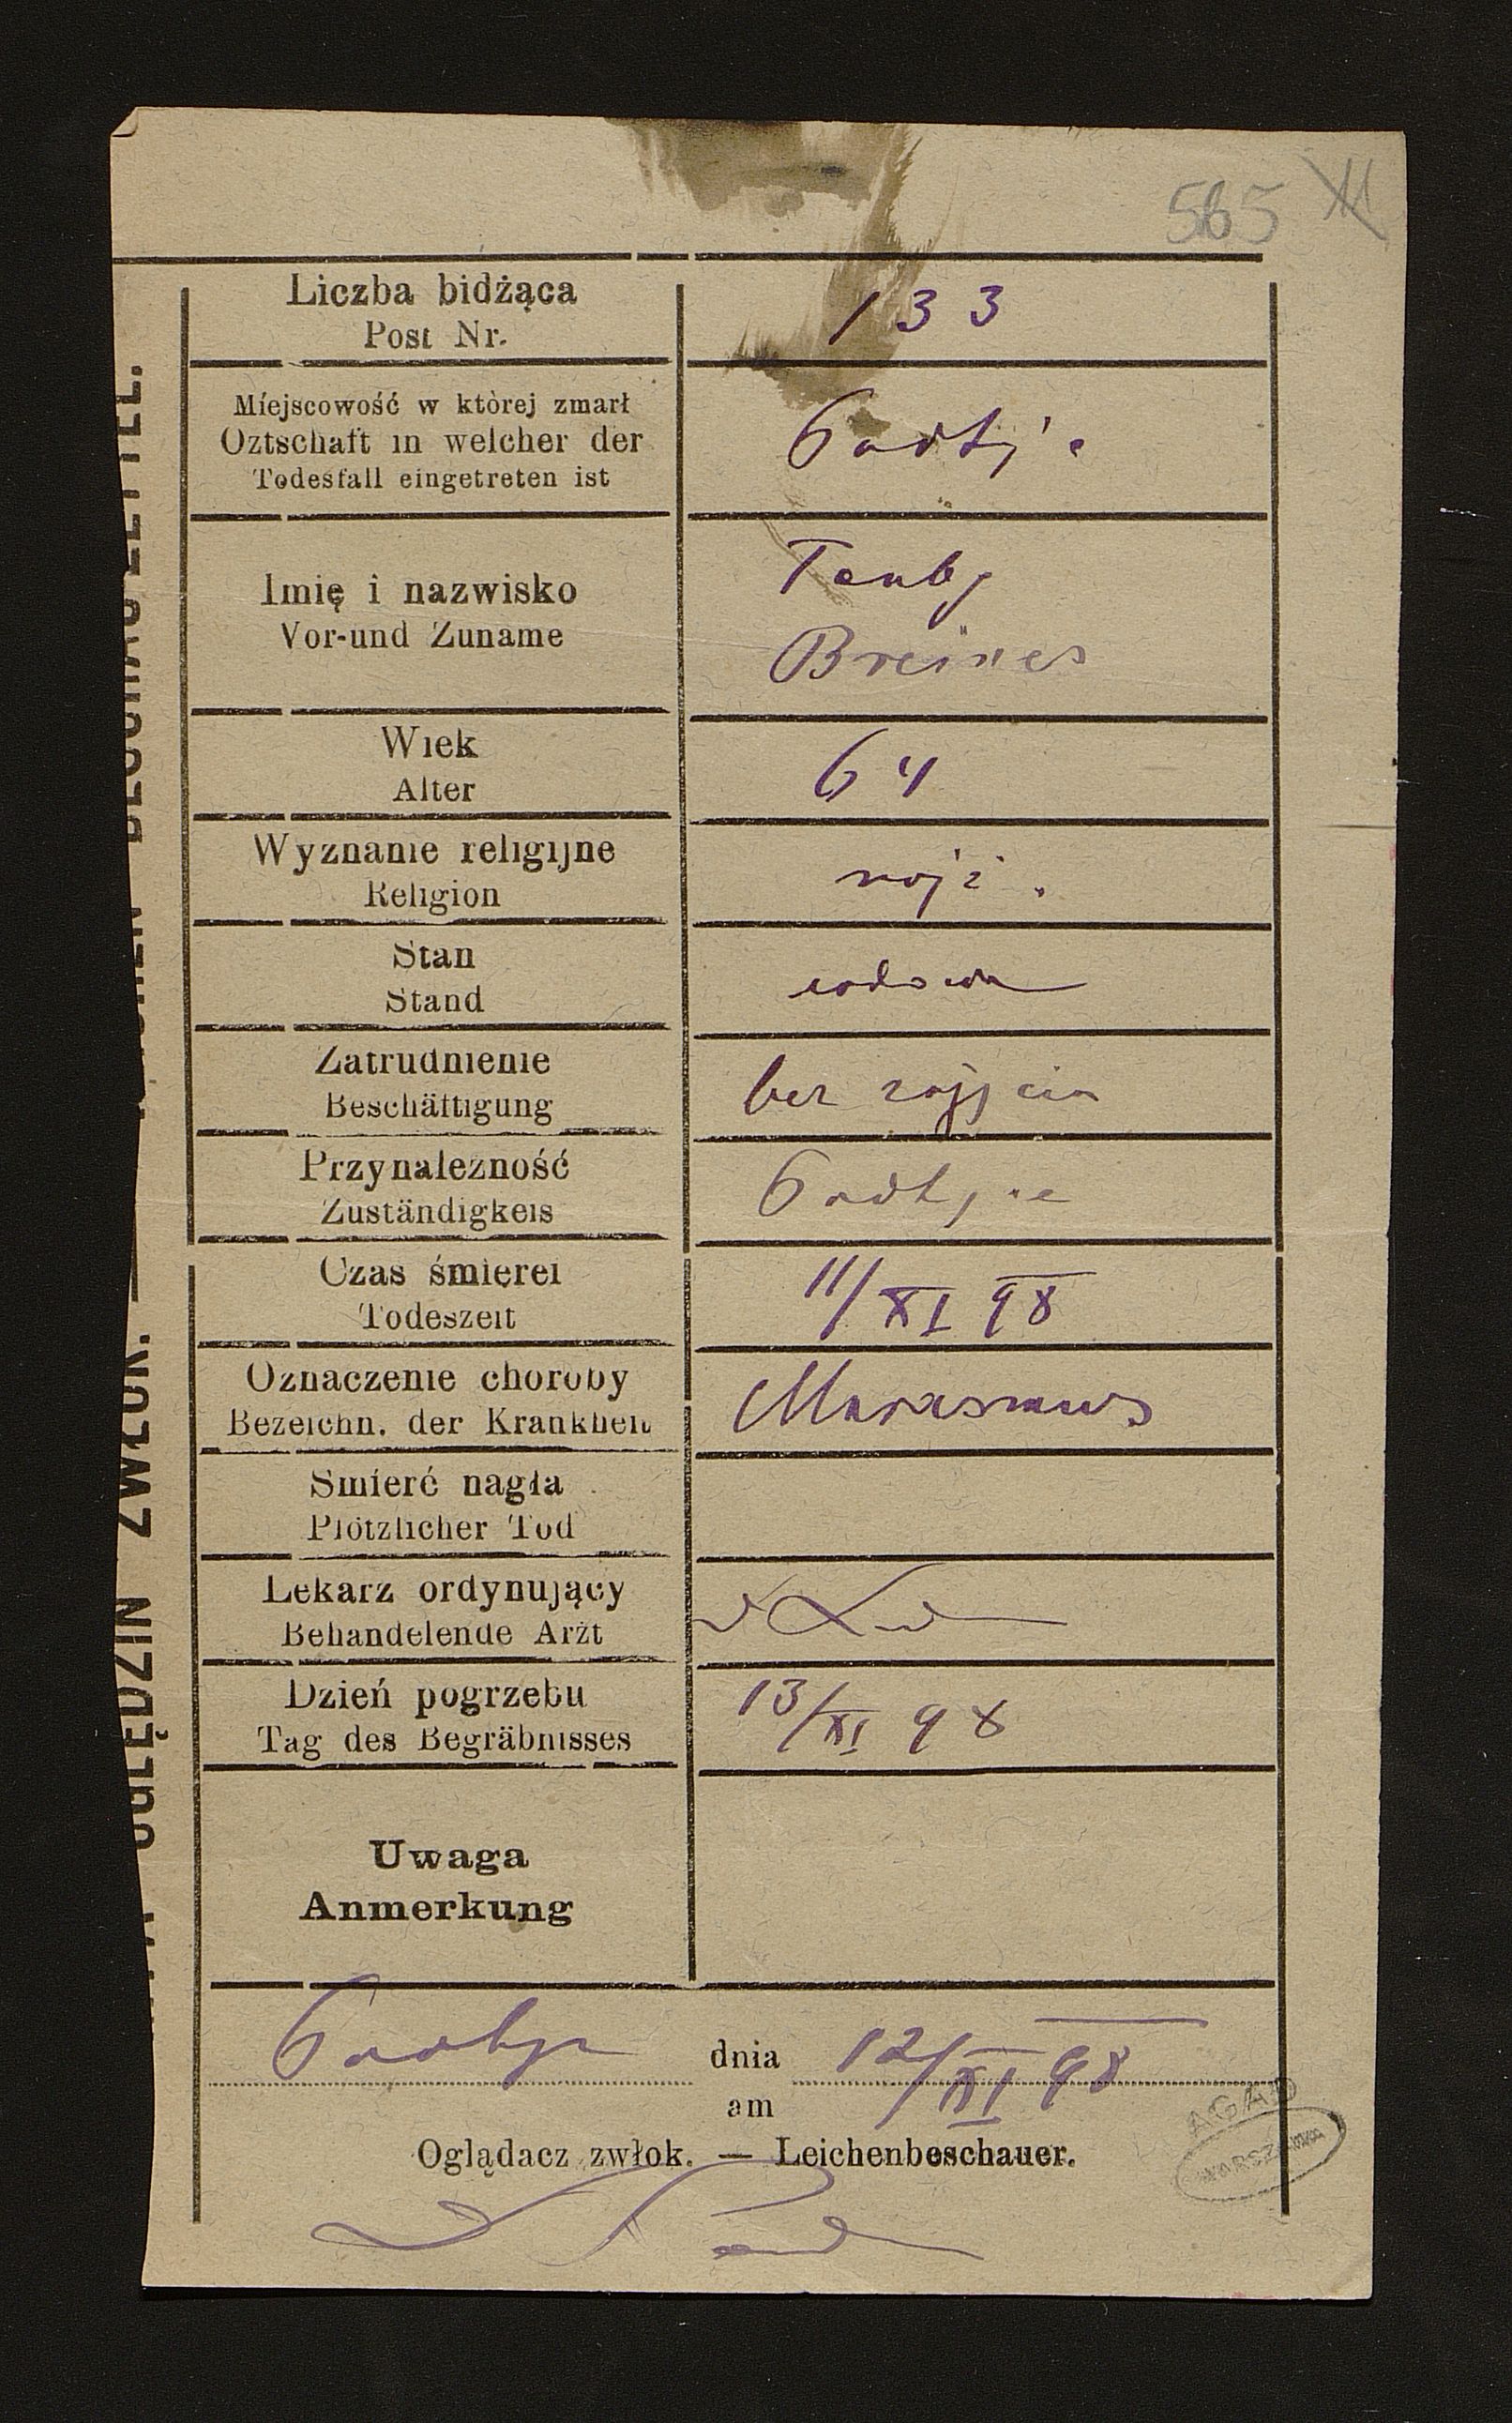 565
Liczba bidżąca
Post Nr.
133
Miejscowość w której zmarł
Oztschaft in welcher der
Todesfall eingetreten ist
Imię i nazwisko
Vor-und Zuname
Breines
Wiek
Alter
64
Wyznanie religijne
Religion
mojż.
Stan
Stand
wdowa
Zatrudnienie
Beschäftigung
bez zajęcia
Przynależność
Zuständigkeis
Czas śmierei
Todeszeit
11/XI 98
Oznaczenie choroby
Bezeichn. der Krankheit
Marasmus
Śmierć nagła
Plötzlicher Tod
Lekarz ordynujący
Behandelende Arżt
Dzień pogrzebu
Tag des Begräbnisses
13/XI 98
Uwaga
Anmerkung
dnia 12/XI 98
am
Oglądacz zwłok. — Leichenbeschauer.
AGAD
WARSZAWA
OGLĘDZIN ZWŁOK. —